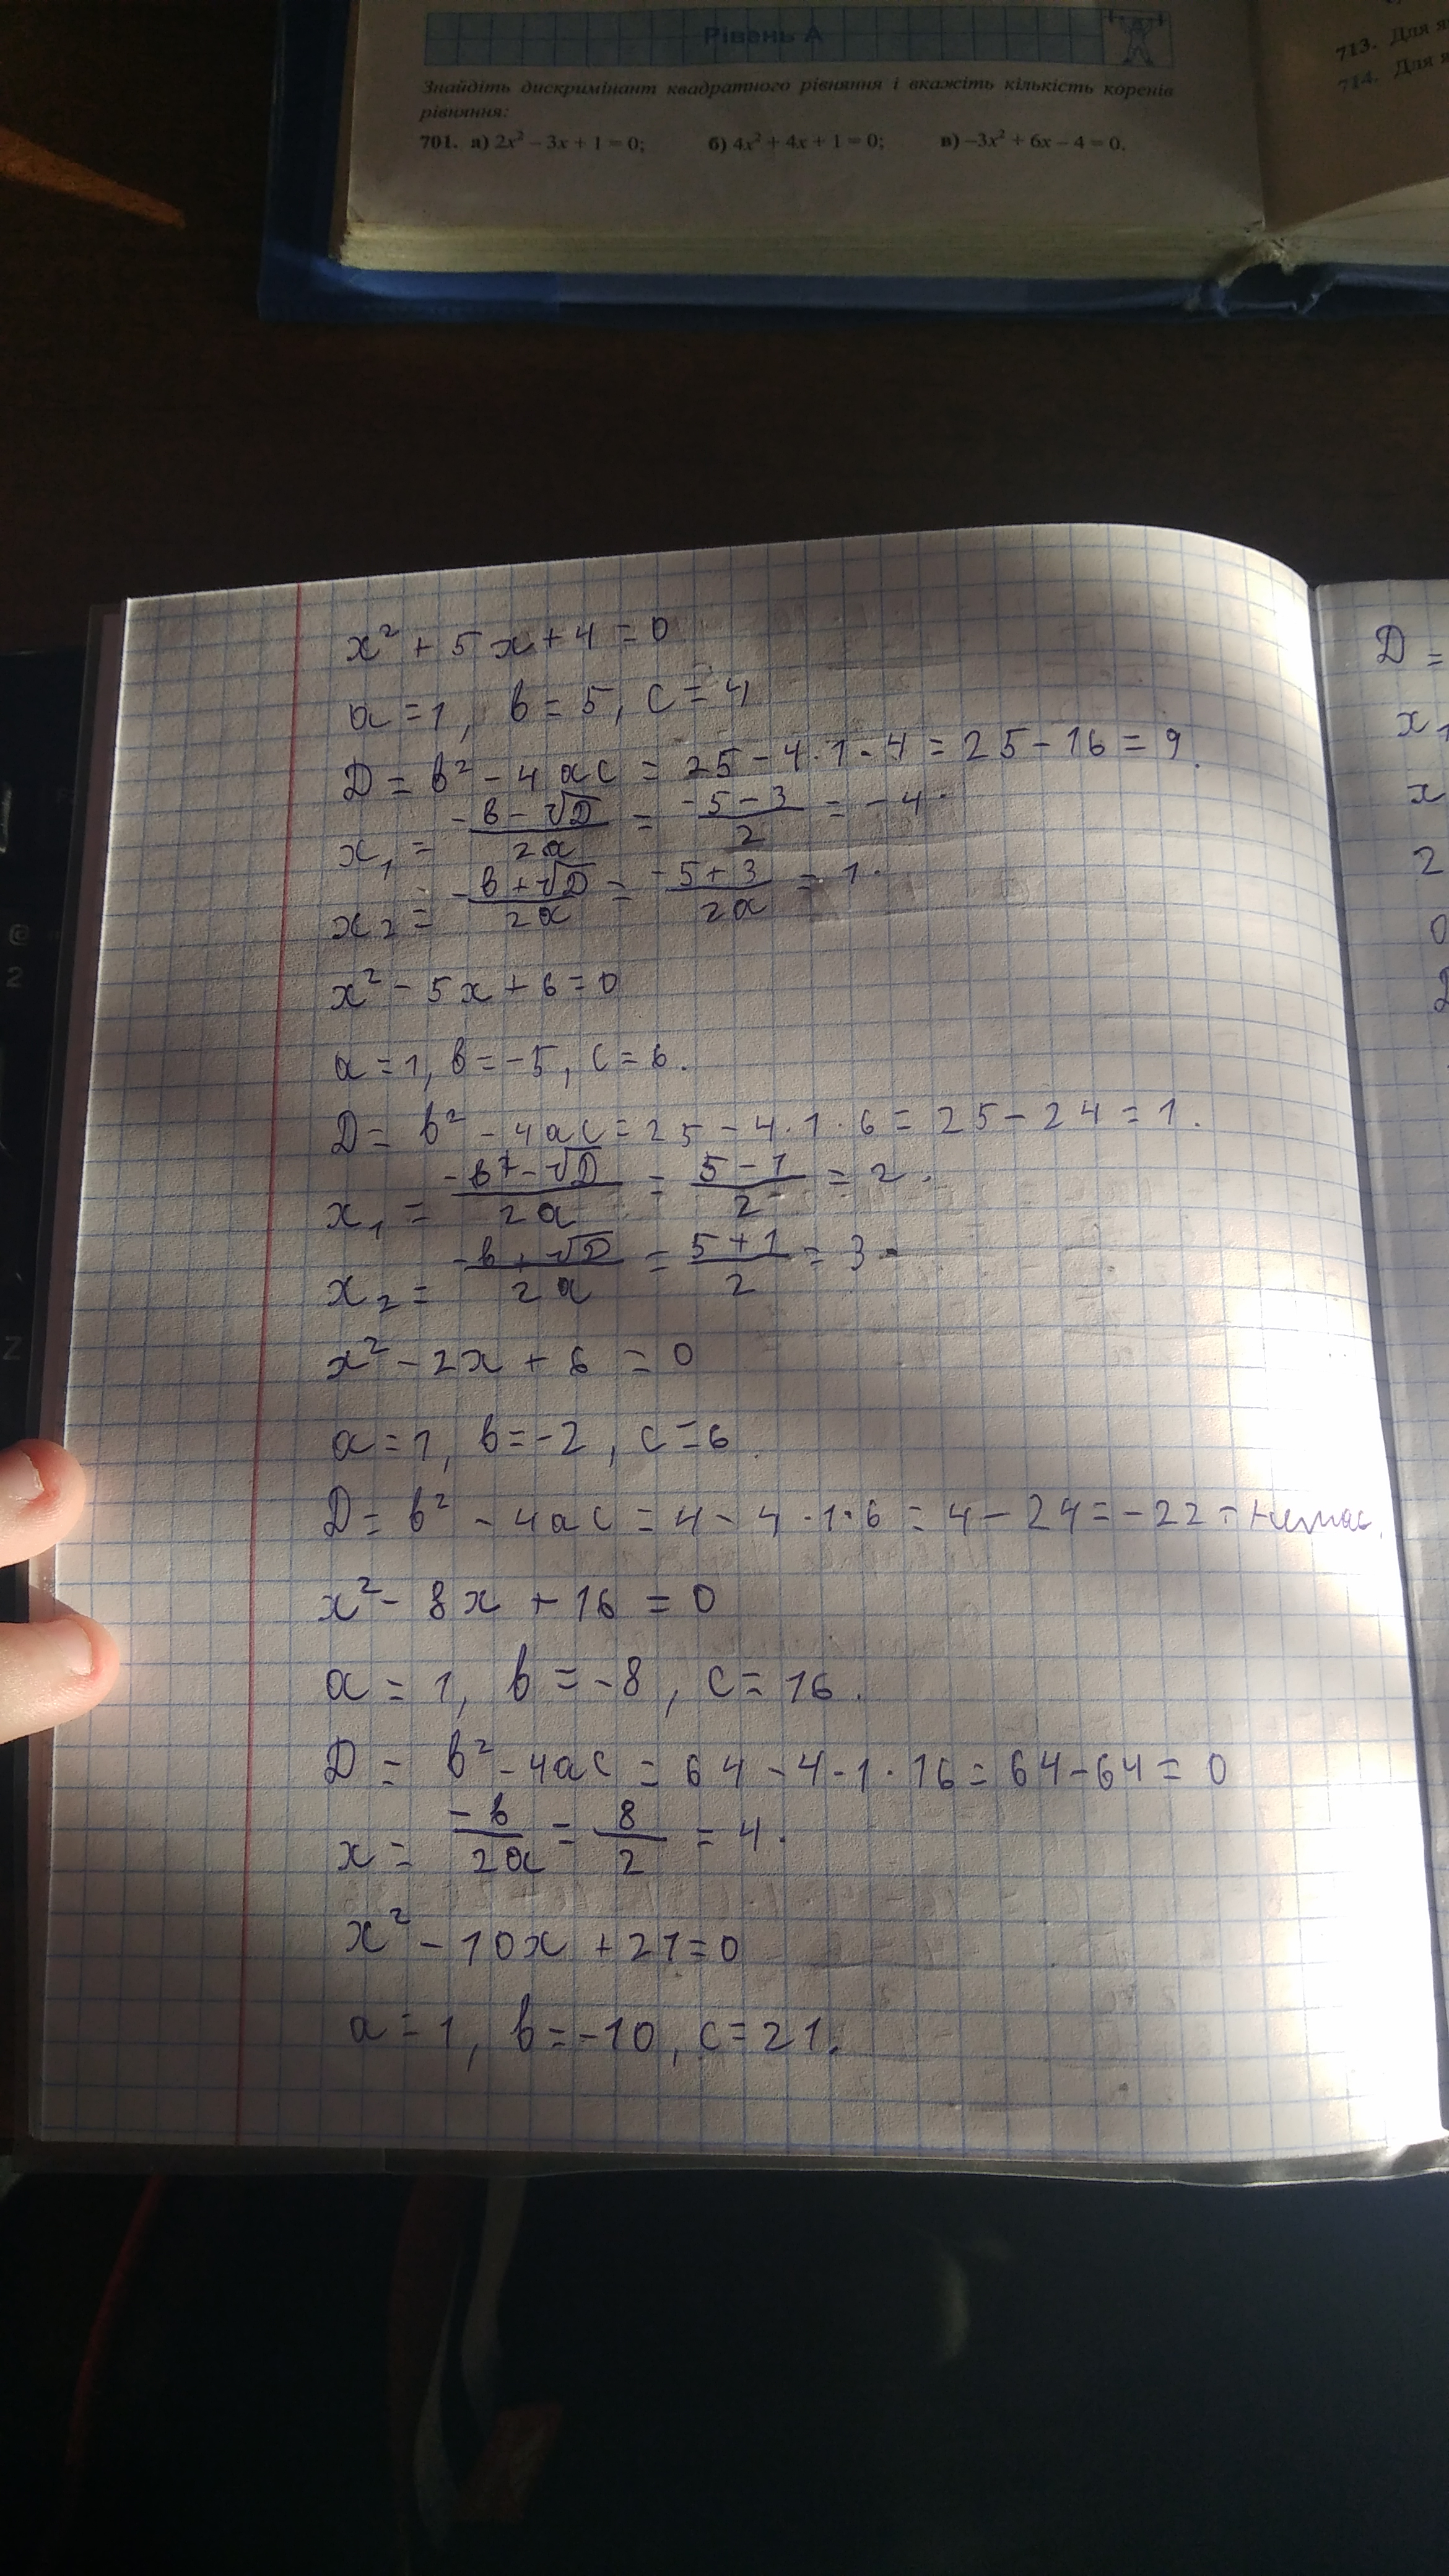 Рівень А
Знайдіть дискримінант квадратного рівняння і вкажіть кількість коренів
рівняння:
701. а) 2x² − 3x + 1 = 0; б) 4x² + 4x + 1 = 0; в) −3x² + 6x − 4 = 0.
713. Для
714. Для
x² + 5x + 4 = 0
a = 1, b = 5, c = 4
D = b² − 4ac = 25 − 4·1·4 = 25 − 16 = 9.
x₁ = (−b − √D)/(2a) = (−5 − 3)/2 = −4.
x₂ = (−b + √D)/(2a) = (−5 + 3)/(2a) = 1.
x² − 5x + 6 = 0
a = 1, b = −5, c = 6.
D = b² − 4ac = 25 − 4·1·6 = 25 − 24 = 1.
x₁ = (−b − √D)/(2a) = (5 − 1)/2 = 2.
x₂ = (−b + √D)/(2a) = (5 + 1)/2 = 3.
x² − 2x + 6 = 0
a = 1, b = −2, c = 6.
D = b² − 4ac = 4 − 4·1·6 = 4 − 24 = −22 = Немає.
x² − 8x + 16 = 0
a = 1, b = −8, c = 16.
D = b² − 4ac = 64 − 4·1·16 = 64 − 64 = 0
x = −b/(2a) = 8/2 = 4.
x² − 10x + 21 = 0
a = 1, b = −10, c = 21.
D =
x₁
x
2